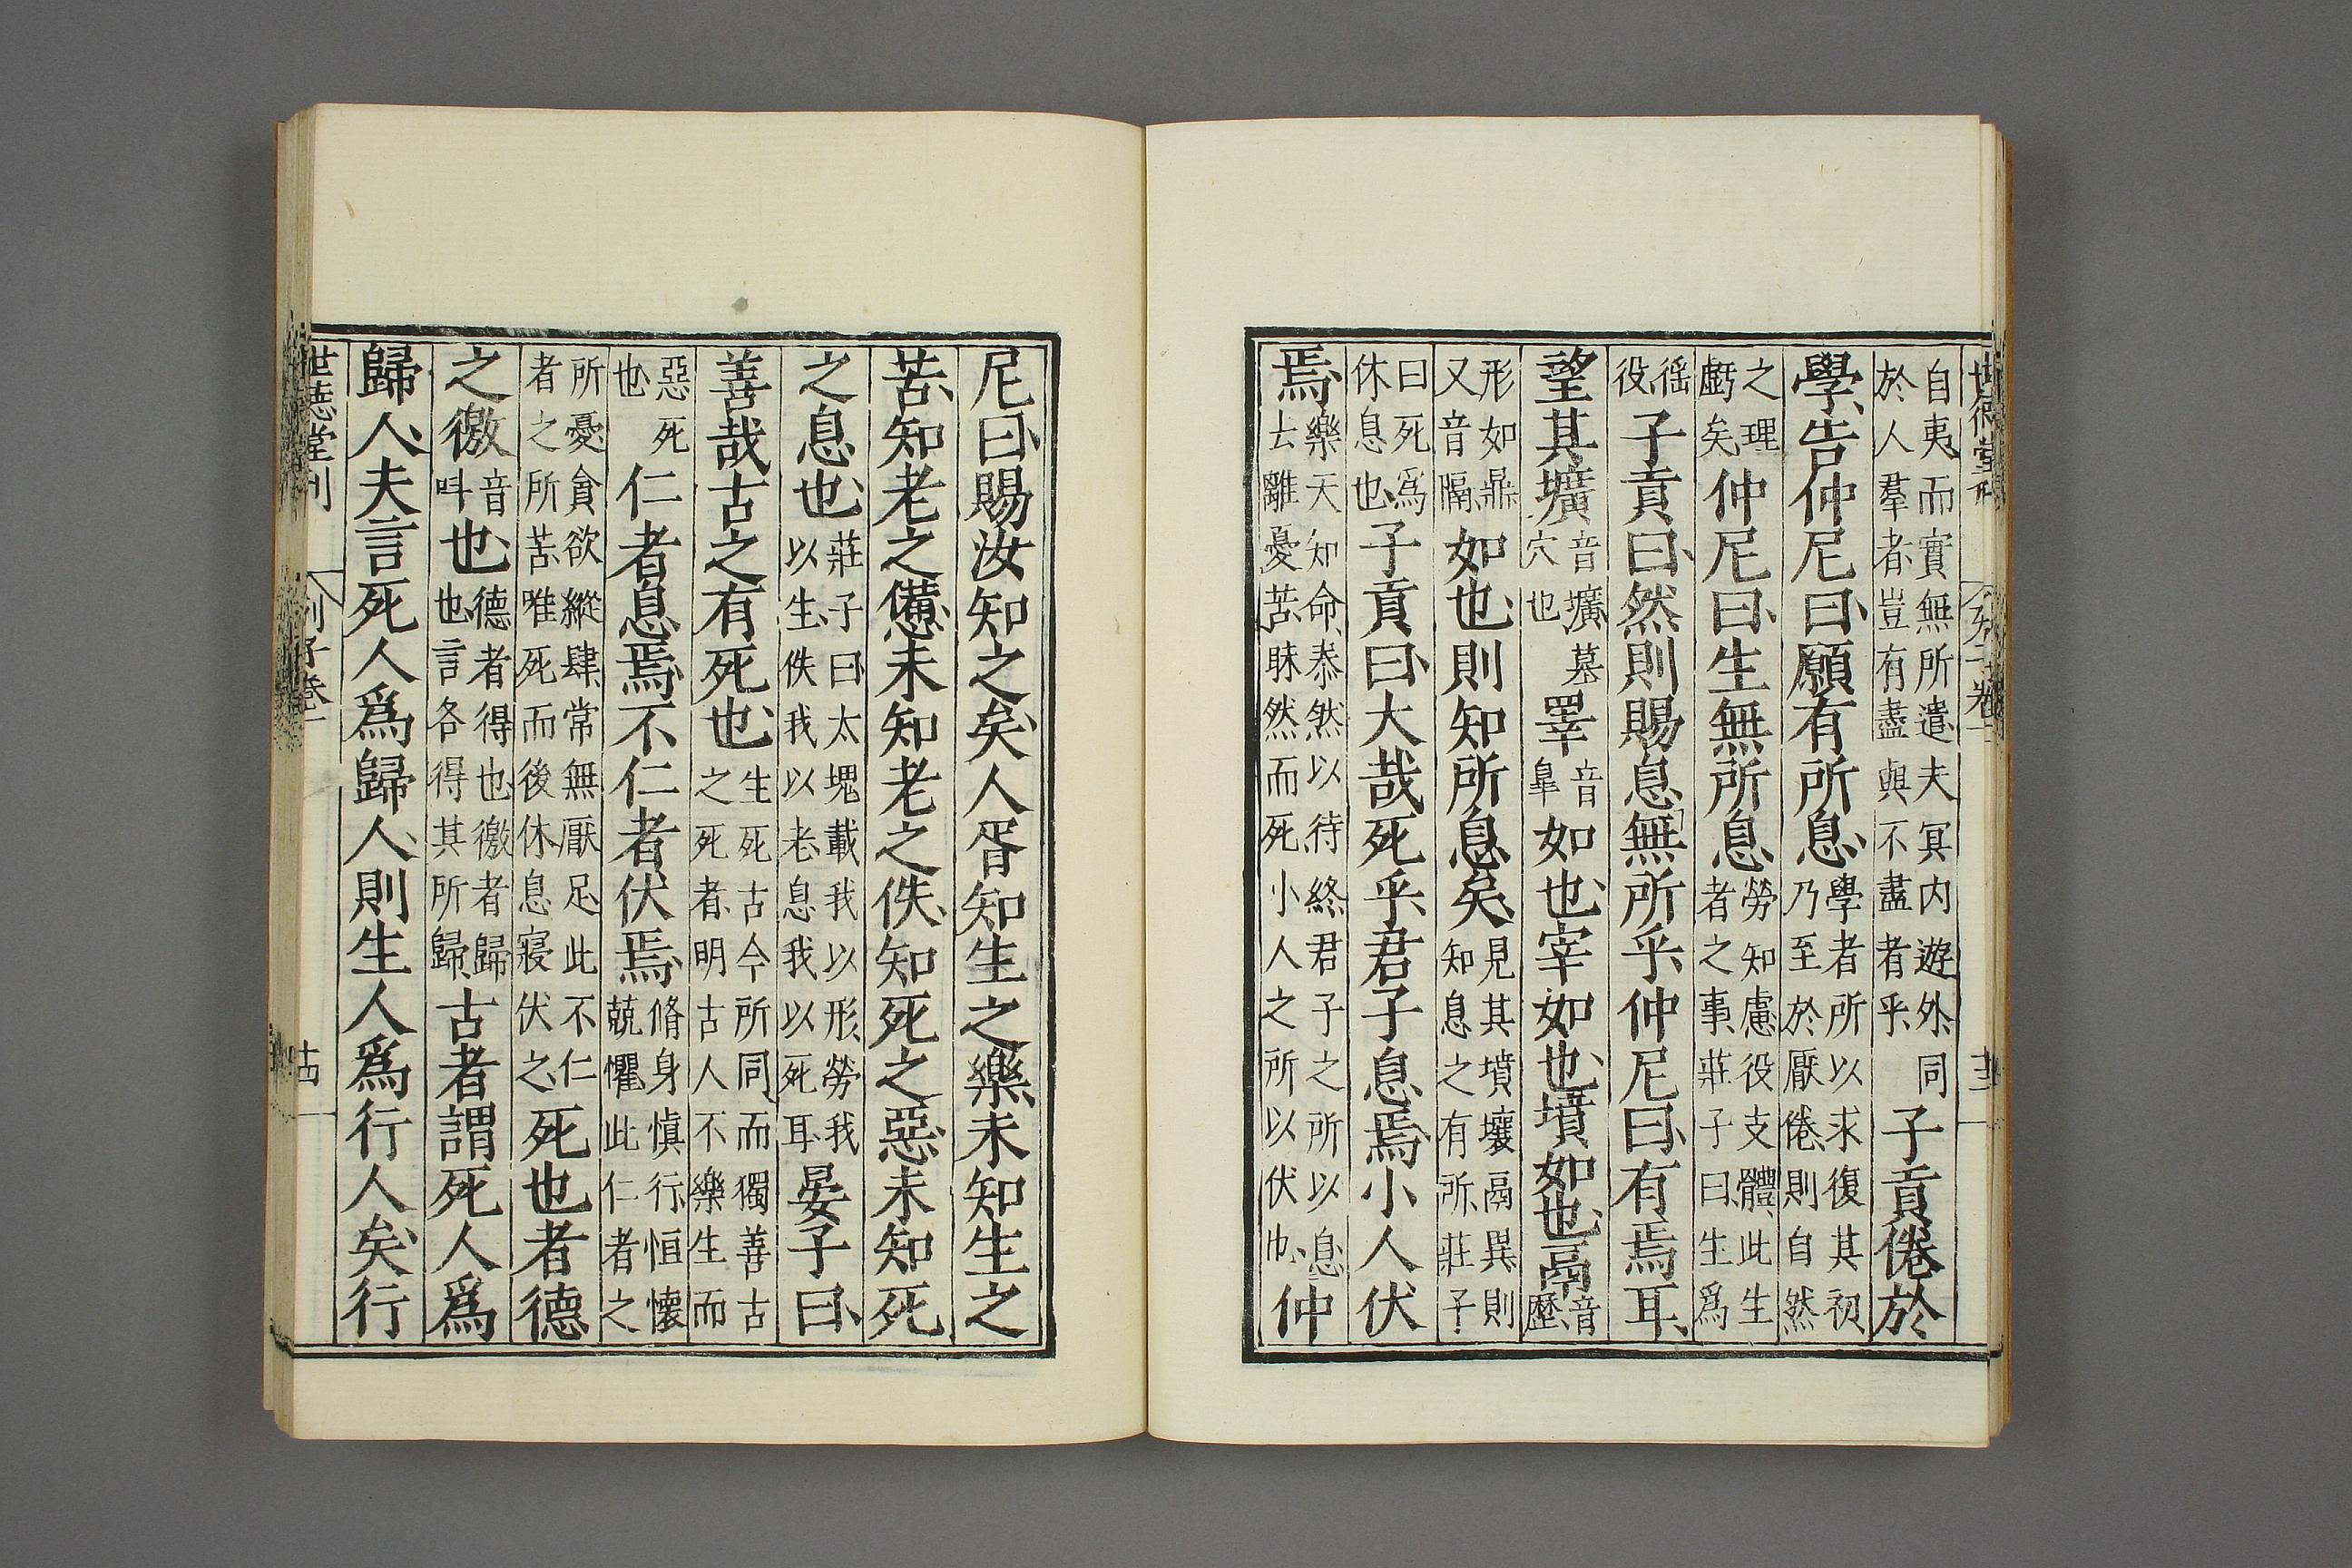 世德堂刊 列子卷一 十三
自夷而實無所遣夫冥内遊外同於人羣者豈有盡與不盡者乎子貢倦於
學告仲尼曰願有所息學者所以求復其初乃至於厭倦則自然
之理虧矣仲尼曰生無所息勞知慮役支體此生者之事莊子曰生爲
徭役子貢曰然則賜息無所乎仲尼曰有焉耳
望其壙音壙墓穴也睪音皐如也宰如也墳如也鬲音歷
形如鼎又音隔如也則知所息矣見其墳壤鬲異則知息之有所莊子
曰死爲休息也子貢曰大哉死乎君子息焉小人伏
焉樂天知命泰然以待終君子之所以息去離憂苦昧然而死小人之所以伏也仲
尼曰賜汝知之矣人胥知生之樂未知生之
苦知老之憊未知老之佚知死之惡未知死
之息也莊子曰大塊載我以形勞我以生佚我以老息我以死耳晏子曰
善哉古之有死也生死古今所同而獨善古之死者明古人不樂生而
惡死也仁者息焉不仁者伏焉脩身慎行恒懷兢懼此仁者之
所憂貪欲縱肆常無厭足此不仁者之所苦唯死而後休息寢伏之死也者德
之徼音叫也德者得也徼者歸也言各得其所歸古者謂死人爲
歸人夫言死人爲歸人則生人爲行人矣行
世德堂刊 列子卷一 十四